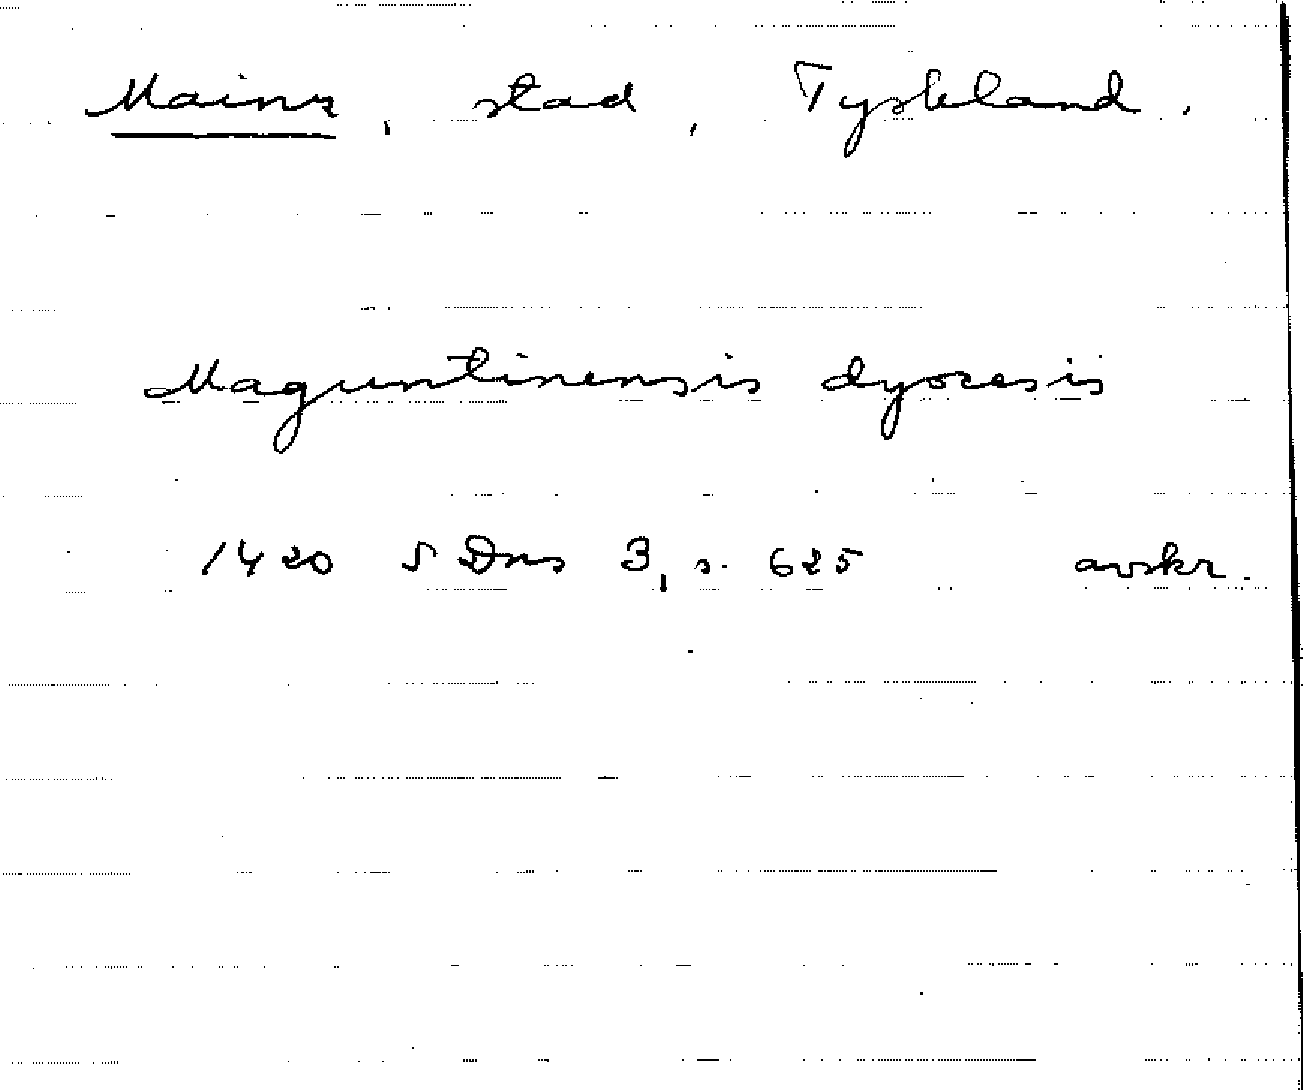 Mainz, stad, Tyskland.
Maguntinensis dyocesis
1420 SDns 3, s. 625 avskr.